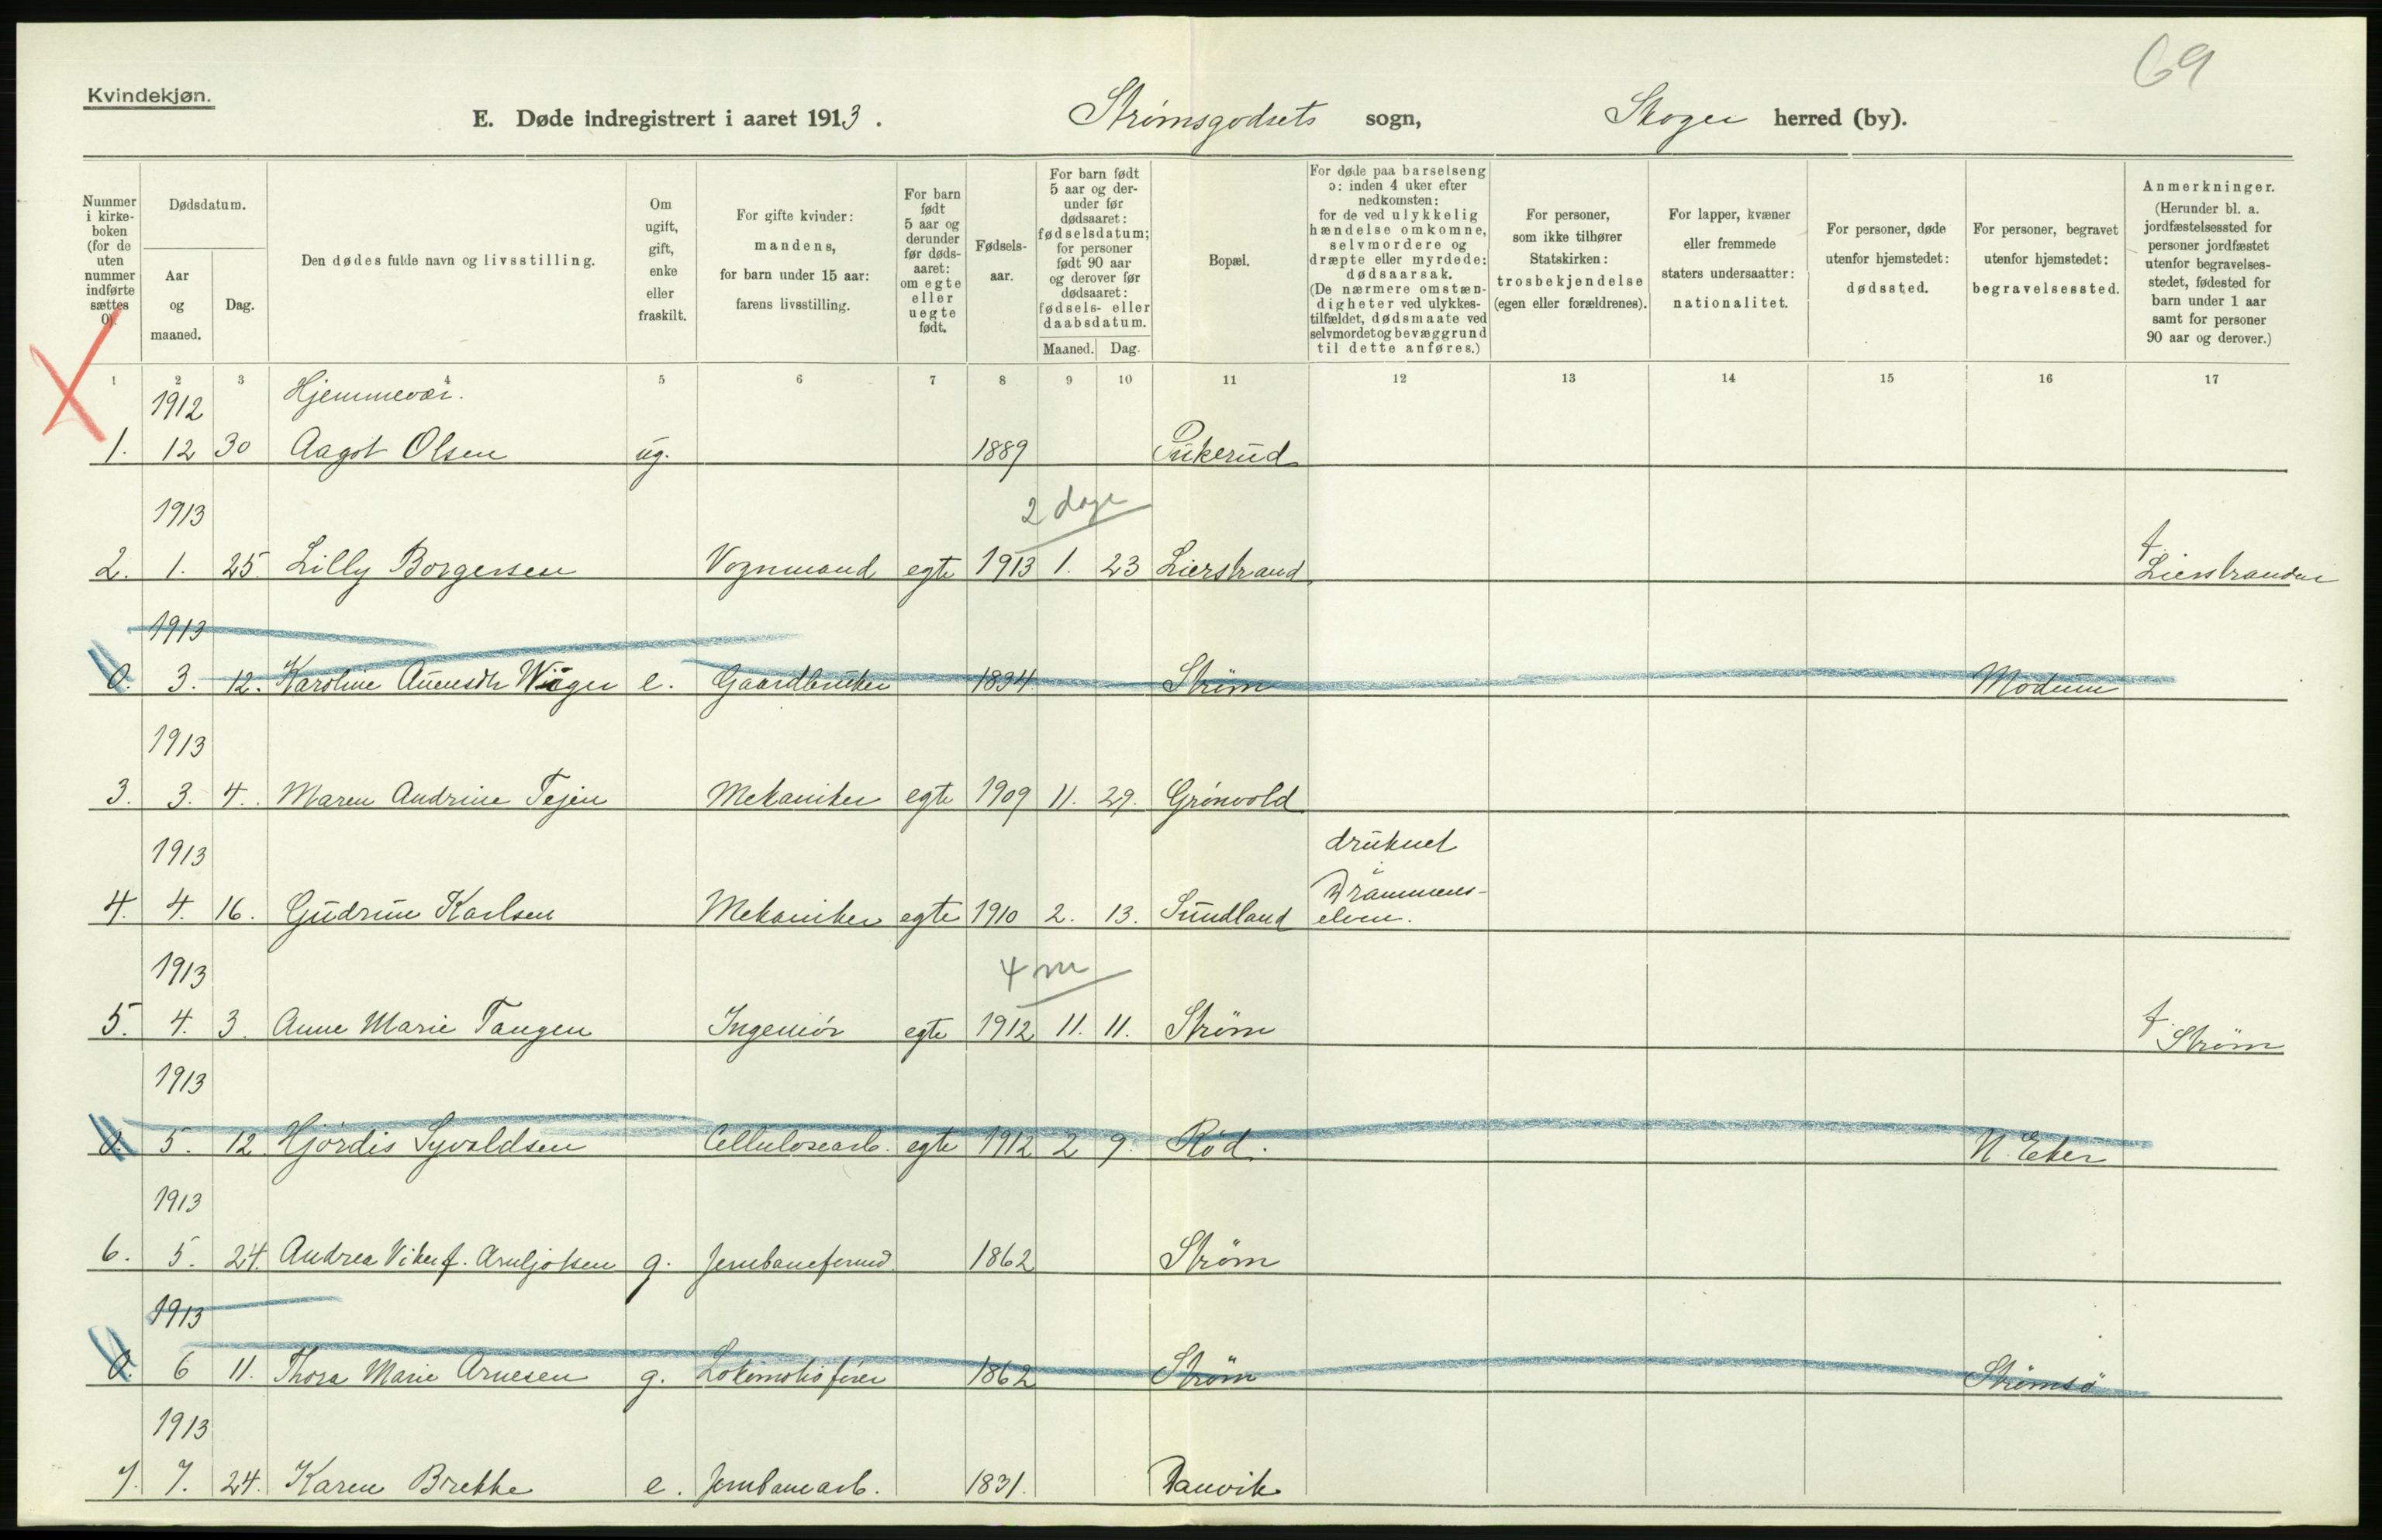 69
Kvindekjøn.
E. Døde indregistrert i aaret 1913. Strømsgodsets sogn, Skoger herred (by).
Nummer i kirkeboken (for de uten nummer indførte sættes 0).
Dødsdatum.
Aar og maaned.
Dag.
Den dødes fulde navn og livsstilling.
Om ugift, gift, enke eller fraskilt.
For gifte kvinder: mandens, for barn under 15 aar: farens livsstilling.
For barn født 5 aar og derunder før dødsaaret: om egte eller uegte født.
Fødselsaar.
For barn født 5 aar og derunder før dødsaaret: fødselsdatum; for personer født 90 aar og derover før dødsaaret: fødsels- eller daabsdatum.
Maaned. Dag.
Bopæl.
For døde paa barselseng ɔ: inden 4 uker efter nedkomsten: for de ved ulykkelig hændelse omkomne, selvmordere og dræpte eller myrdede: dødsaarsak. (De nærmere omstændigheter ved ulykkestilfældet, dødsmaate ved selvmordet og bevæggrund til dette anføres.)
For personer, som ikke tilhører Statskirken: trosbekjendelse (egen eller forældrenes).
For lapper, kvæner eller fremmede staters undersaatter: nationalitet.
For personer, døde utenfor hjemstedet: dødssted.
For personer, begravet utenfor hjemstedet: begravelsessted.
Anmerkninger. (Herunder bl. a. jordfæstelsessted for personer jordfæstet utenfor begravelsesstedet, fødested for barn under 1 aar samt for personer 90 aar og derover.)
1 2 3 4 5 6 7 8 9 10 11 12 13 14 15 16 17
1912 Hjemmevær.
1. 12 30 Aagot Olsen ug. 1889 Pukerud
1913 2 dage
2. 1. 25. Lilly Borgersen Vognmand egte 1913 1. 23 Lierstrand f. Lierstranden
1913
0. 3. 12. Karoline e. Gaardbruker 1834 Strøm Modum
1913
3. 3. 4. Maren Andrine Tejen Mekaniker egte 1909 11. 29. Grønvold
1913 druknet i
4. 4. 16. Gudrun Karlsen Mekaniker egte 1910 2. 13. Sundland Drammenselven.
1913 4 m
5. 4. 3. Anne Marie Tangen Ingeniør egte 1912 11. 11. Strøm f. Strøm
1913
0. 5. 12. Hjørdis Syvaldsen Cellulosearb. egte 1912 2 9. Rød. N. Eker
1913
6. 5. 24. Andrea Viken f. Arnljotsen g. Jernbaneformd. 1862 Strøm
1913
0. 6 11. Thora Marie Arnesen g. Lokomotivfører 1862 Strøm Strømsø
1913
7. 7. 24. Karen Brekke e. Jernbanearb. 1831. Danvik